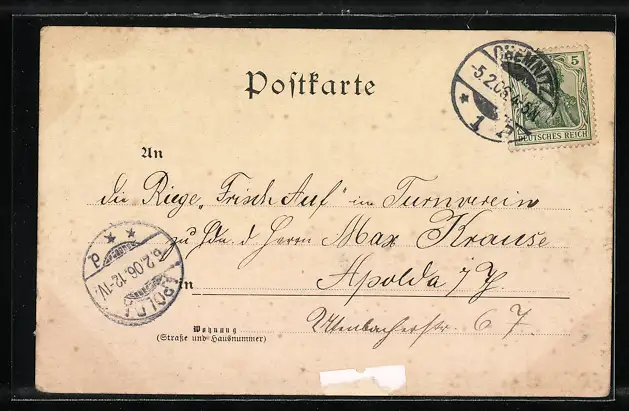 Postkarte
CHEMNITZ
-5.2.06.
* 1
5
DEUTSCHES REICH
An
die Riege „Frisch Auf“ im Turnverein
zu Hdn. d. Herrn Max Krause
in Apolda i/Th
Wohnung
(Straße und Hausnummer)
67
APOLDA
6.2.06.12-1V.